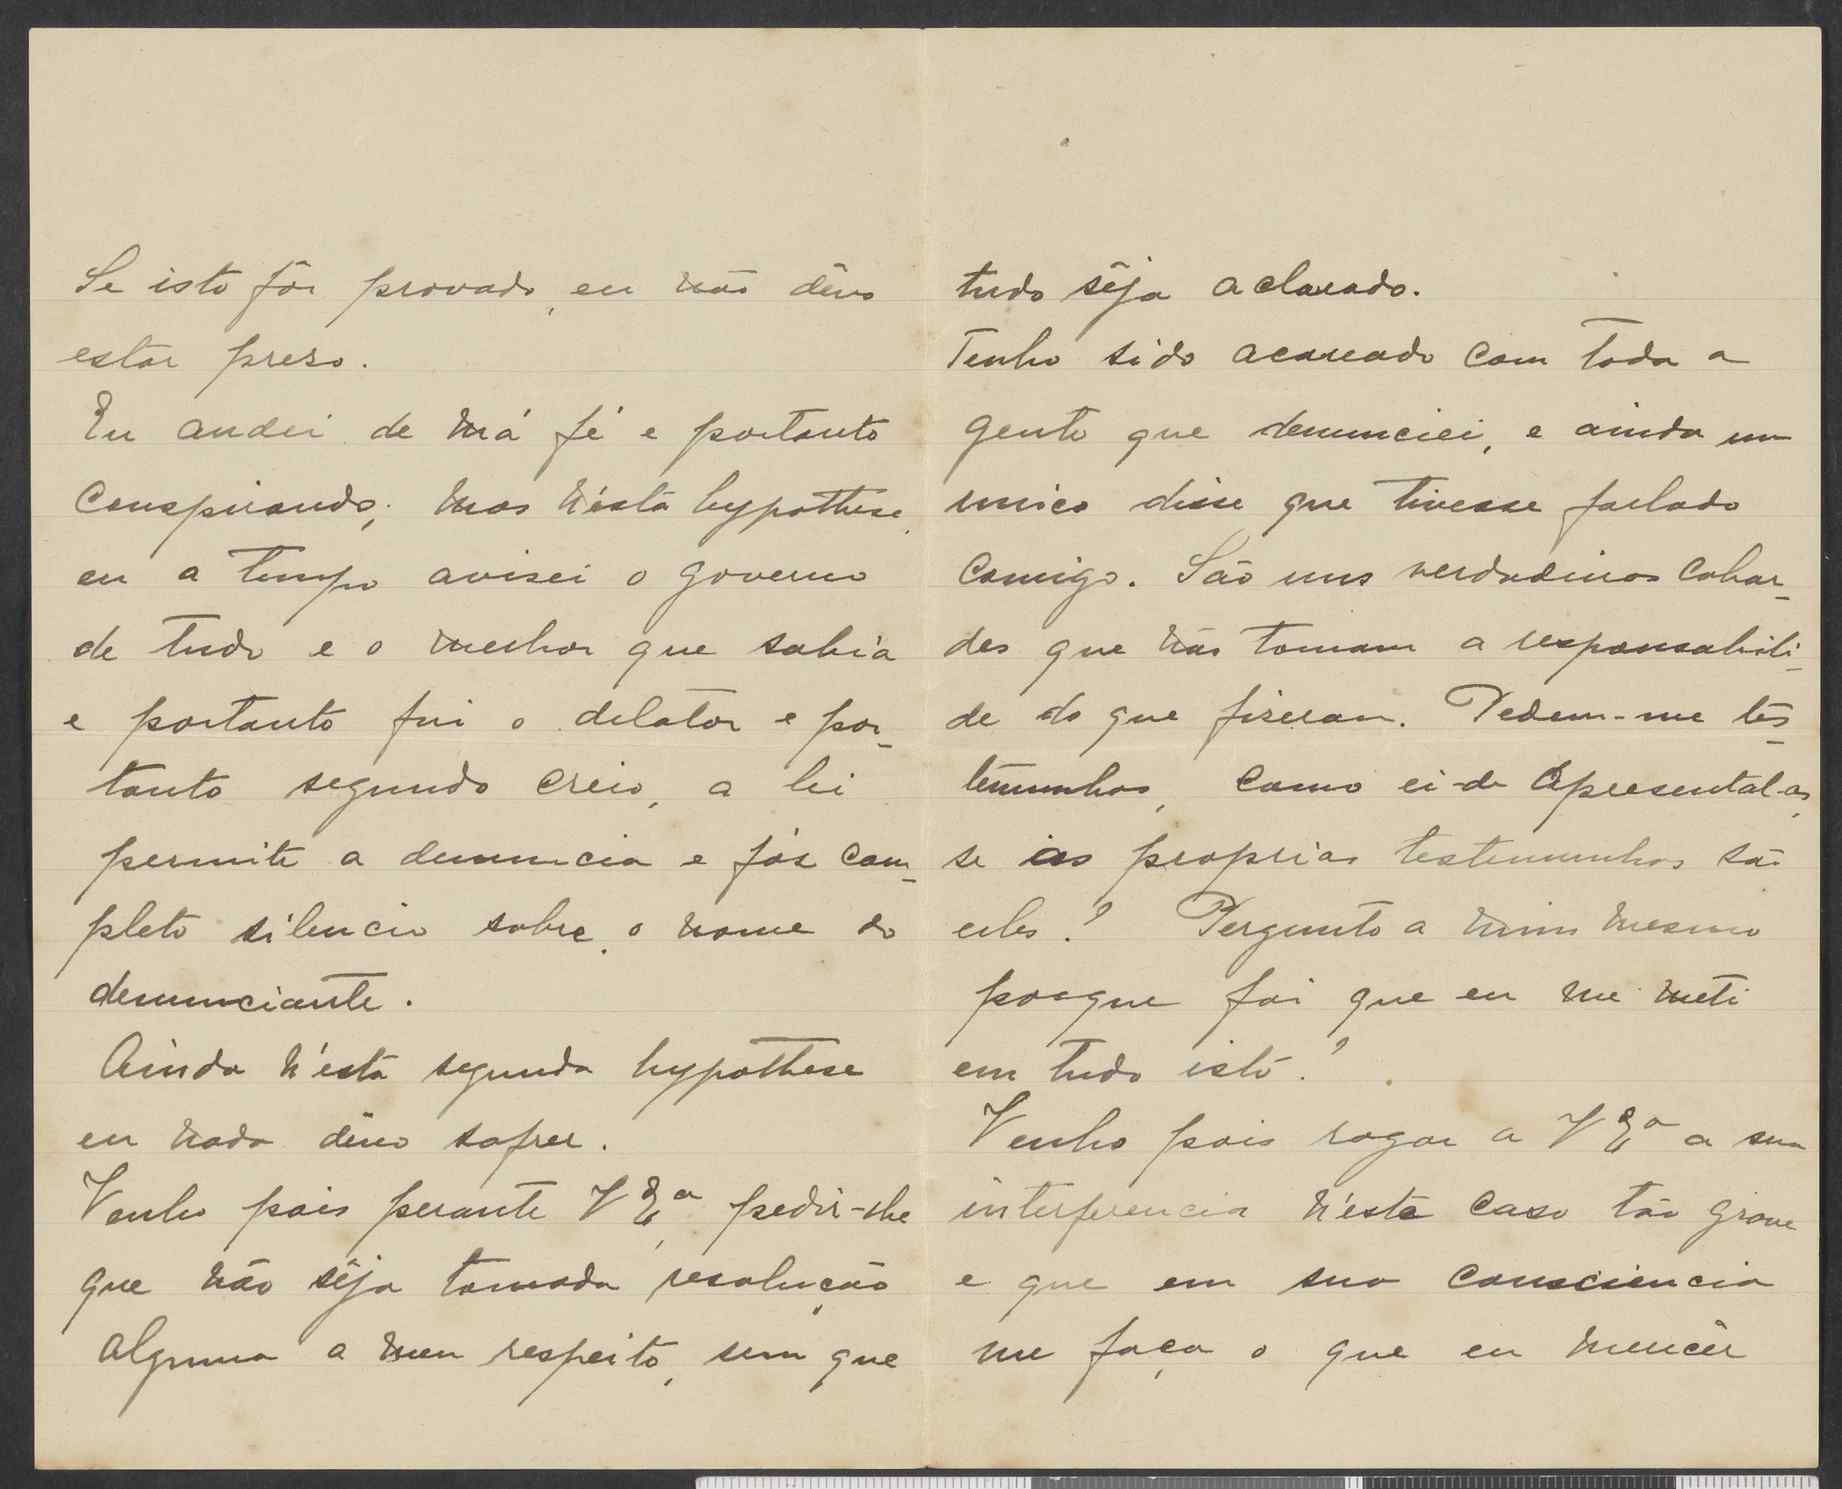 Se isto fôr provado, eu não dêvo
estar preso.
Eu andei de má fé e portanto
conspirando; mas n'ésta hypothese,
eu a tempo avisei o governo
de tudo e o melhor que sabia
e portanto fui o delator e por-
tanto segundo creio, a lei
permite a denuncia e fáz com-
pleto silencio sobre o nome do
denunciante.
Ainda n'ésta segunda hypothese
eu nada dêvo sofrer.
Venho pois perante V Exª, pedir-lhe
que não sêja tomada resolução
alguma a meu respeito, sem que
tudo sêja aclarado.
Tenho sido acareado com toda a
gente que denunciei, e ainda um
unico disse que tivesse fallado
comigo. São uns verdadeiros cobar-
des que não tomam a responsabili-
de do que fizeram. Pedem-me tes-
temunhas, como ei-de apresental-as,
se as proprias testemunhas são
eles? Pergunto a mim mesmo
porque foi que eu me meti
em tudo isto?
Venho pois rogar a V Exª a sua
interferencia n'este caso tão grave
e que em sua consciencia
me faça o que eu merecêr